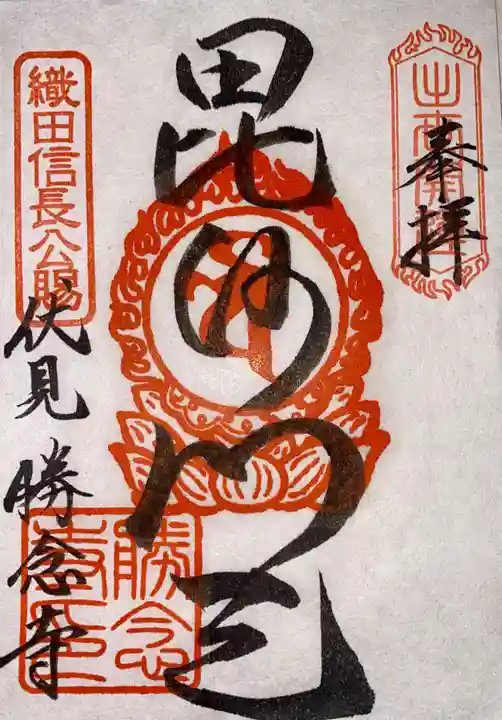 奉拝
毘沙門天
織田信長公賜
伏見 勝念寺
勝念
寺印